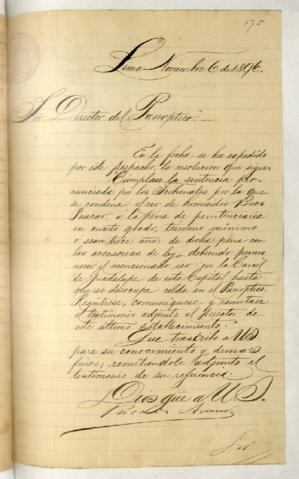 175
Lima, Noviembre 6 de 1896.
Sor Director del Panóptico.
En la fecha se ha expedido
por este despacho, la resolucion que sigue:
"Cumplase la sentencia pro-
nunciada por los Tribunales por la que
se condena al reo de homicidio
Paucar, a la pena de penitenciaria
en cuarto grado, término mínimo
o sean trece años de dicha pena con
las accesorias de ley, debiendo perma
necer el mencionado reo en la Carcel
de Guadalupe de esta Capital hasta
que se desocupe celda en el Panóptico.
Regístrese, comuníquese y remítase
el testimonio adjunto al Director de
este último establecimiento."
Que trascribo a US
para su conocimiento y demas
fines, remitiendole adjunto el
testimonio de su referencia.
Dios gue a US.